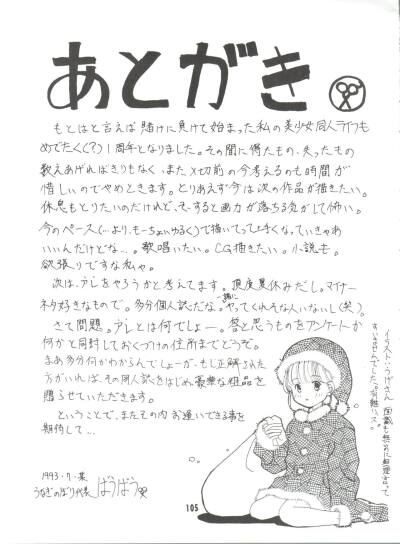 あとがき
もとはと言えば賭けに負けて始まった私の美少女同人ライフも
めでたく(?)1周年となりました。その間に得たもの、失ったもの
数えあげればきりもなく、また〆切前の今考えるのも時間が
惜しいのでやめときます。とりあえず今は次の作品が描きたい。
休息もとりたいのだけれど、そーすると画力が落ちる気がして怖い。
今のペース(…より、もーちょいゆるく)で描いてって上手くなっていきゃあ
いいんだけどな…。歌唱いたい。CG描きたい。小説も。
欲張りですな私ゃ。
次は、アレをやろうかと考えてます。頂度夏休みだし。マイナー
ネタ好きなもので。多分個人誌だな。一緒にやってくれそな人いないし(笑)。
さて問題。アレとは何でしょー。答と思うものをアンケートか
何かと同封しておくづけの住所までどうぞ。
まあ多分何かわからんでしょーが、もし正解された
方がいれば、その同人誌をはじめ、豪華な粗品を
贈らせていただきます。
ということで、またその内お逢いできる事を
期待して…
1993・7・某
うなぎのぼり代表 ばうばう
イラスト・うげさん
すいませんでした。
105